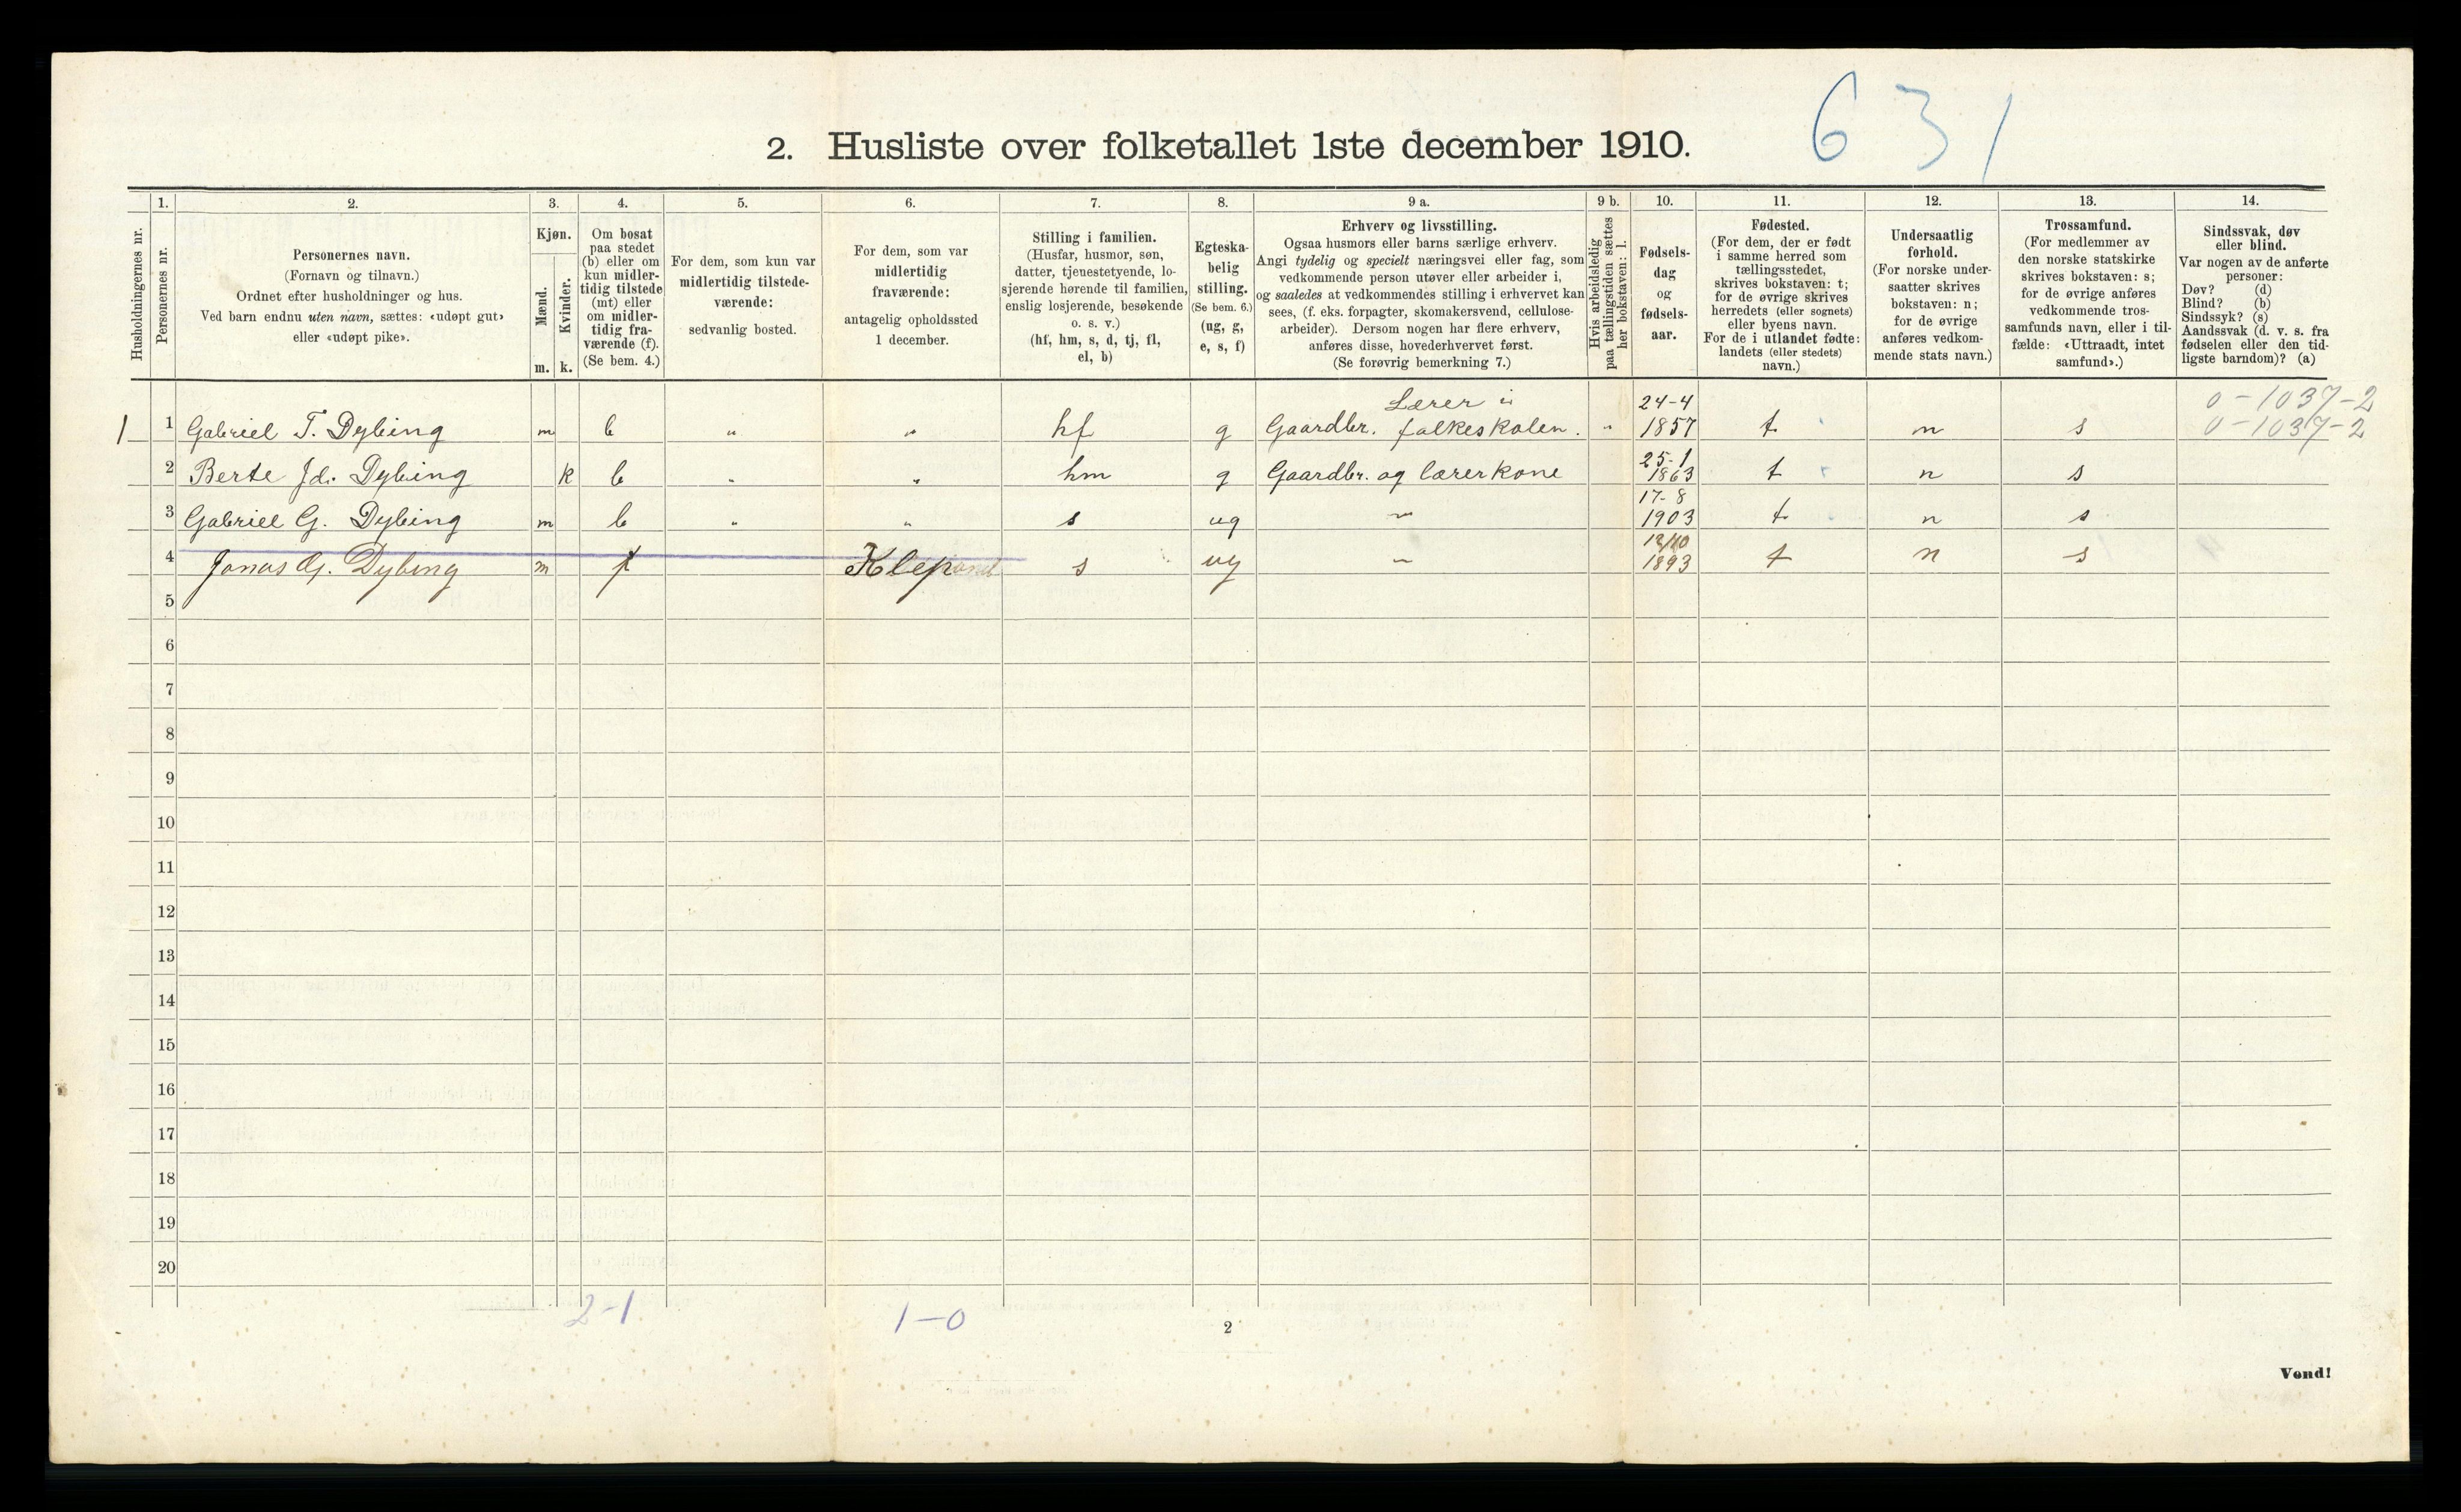 631
2. Husliste over folketallet 1ste december 1910.
Husholdningernes nr.
1.
Personernes nr.
2.
Personernes navn.
(Fornavn og tilnavn.)
Ordnet efter husholdninger og hus.
Ved barn endnu uten navn, sættes: «udøpt gut»
eller «udøpt pike».
3.
Kjøn.
Mænd.
Kvinder.
m. k.
4.
Om bosat
paa stedet
(b) eller om
kun midler-
tidig tilstede
(mt) eller
om midler-
tidig fra-
værende (f).
(Se bem. 4.)
5.
For dem, som kun var
midlertidig tilstede-
værende:
sedvanlig bosted.
6.
For dem, som var
midlertidig
fraværende:
antagelig opholdssted
1 december.
7.
Stilling i familien.
(Husfar, husmor, søn,
datter, tjenestetyende, lo-
sjerende hørende til familien,
enslig losjerende, besøkende
o. s. v.)
(hf, hm, s, d, tj, fl,
el, b)
8.
Egteska-
belig
stilling.
(Se bem. 6.)
(ug, g,
e, s, f)
9 a.
Erhverv og livsstilling.
Ogsaa husmors eller barns særlige erhverv.
Angi tydelig og specielt næringsvei eller fag, som
vedkommende person utøver eller arbeider i,
og saaledes at vedkommendes stilling i erhvervet kan
sees, (f. eks. forpagter, skomakersvend, cellulose-
arbeider). Dersom nogen har flere erhverv,
anføres disse, hovederhvervet først.
(Se forøvrig bemerkning 7.)
9 b.
Hvis arbeidsledig
paa tællingstiden sættes
her bokstaven: l.
10.
Fødsels-
dag
og
fødsels-
aar.
11.
Fødested.
(For dem, der er født
i samme herred som
tællingsstedet,
skrives bokstaven: t;
for de øvrige skrives
herredets (eller sognets)
eller byens navn.
For de i utlandet fødte:
landets (eller stedets)
navn.)
12.
Undersaatlig
forhold.
(For norske under-
saatter skrives
bokstaven: n;
for de øvrige
anføres vedkom-
mende stats navn.)
13.
Trossamfund.
(For medlemmer av
den norske statskirke
skrives bokstaven: s;
for de øvrige anføres
vedkommende tros-
samfunds navn, eller i til-
fælde: «Uttraadt, intet
samfund».)
14.
Sindssvak, døv
eller blind.
Var nogen av de anførte
personer:
Døv? (d)
Blind? (b)
Sindssyk? (s)
Aandssvak (d. v. s. fra
fødselen eller den tid-
ligste barndom)? (a)
Lærer i 24-4 0-1037-2
1 1 Gabriel T. Dybing m b " " hf g Gaardbr. folkeskolen. " 1857 t n s 0-1037-2
25-1
2 Berte Jd. Dybing k b " " hm g Gaardbr. og lærerkone 1863 t n s
17-8
3 Gabriel G. Dybing m b " " s ug — 1903 t n s
4 Jonas G. Dybing m f Klep s ug — 1893 t n s
5
6
7
8
9
10
11
12
13
14
15
16
17
18
19
20
2-1 1-0
2
Vend!